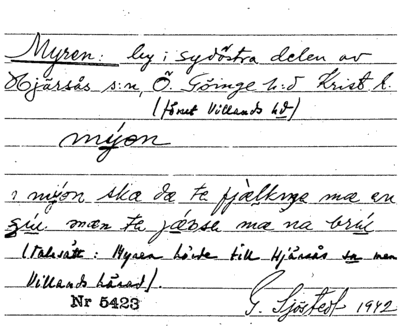 Myren: by i sydöstra delen av
Hjärsås s:n, Ö. Göinge h:d Krist l.
(förut Villands hd)
mýon
i mýon ska da te fjälknge ma en
giú man te jäвse ma na brú
(talesätt: Myren hörde till Hjärsås sn men
Villands härad).
Nr 5423
G. Sjöstedt 1942